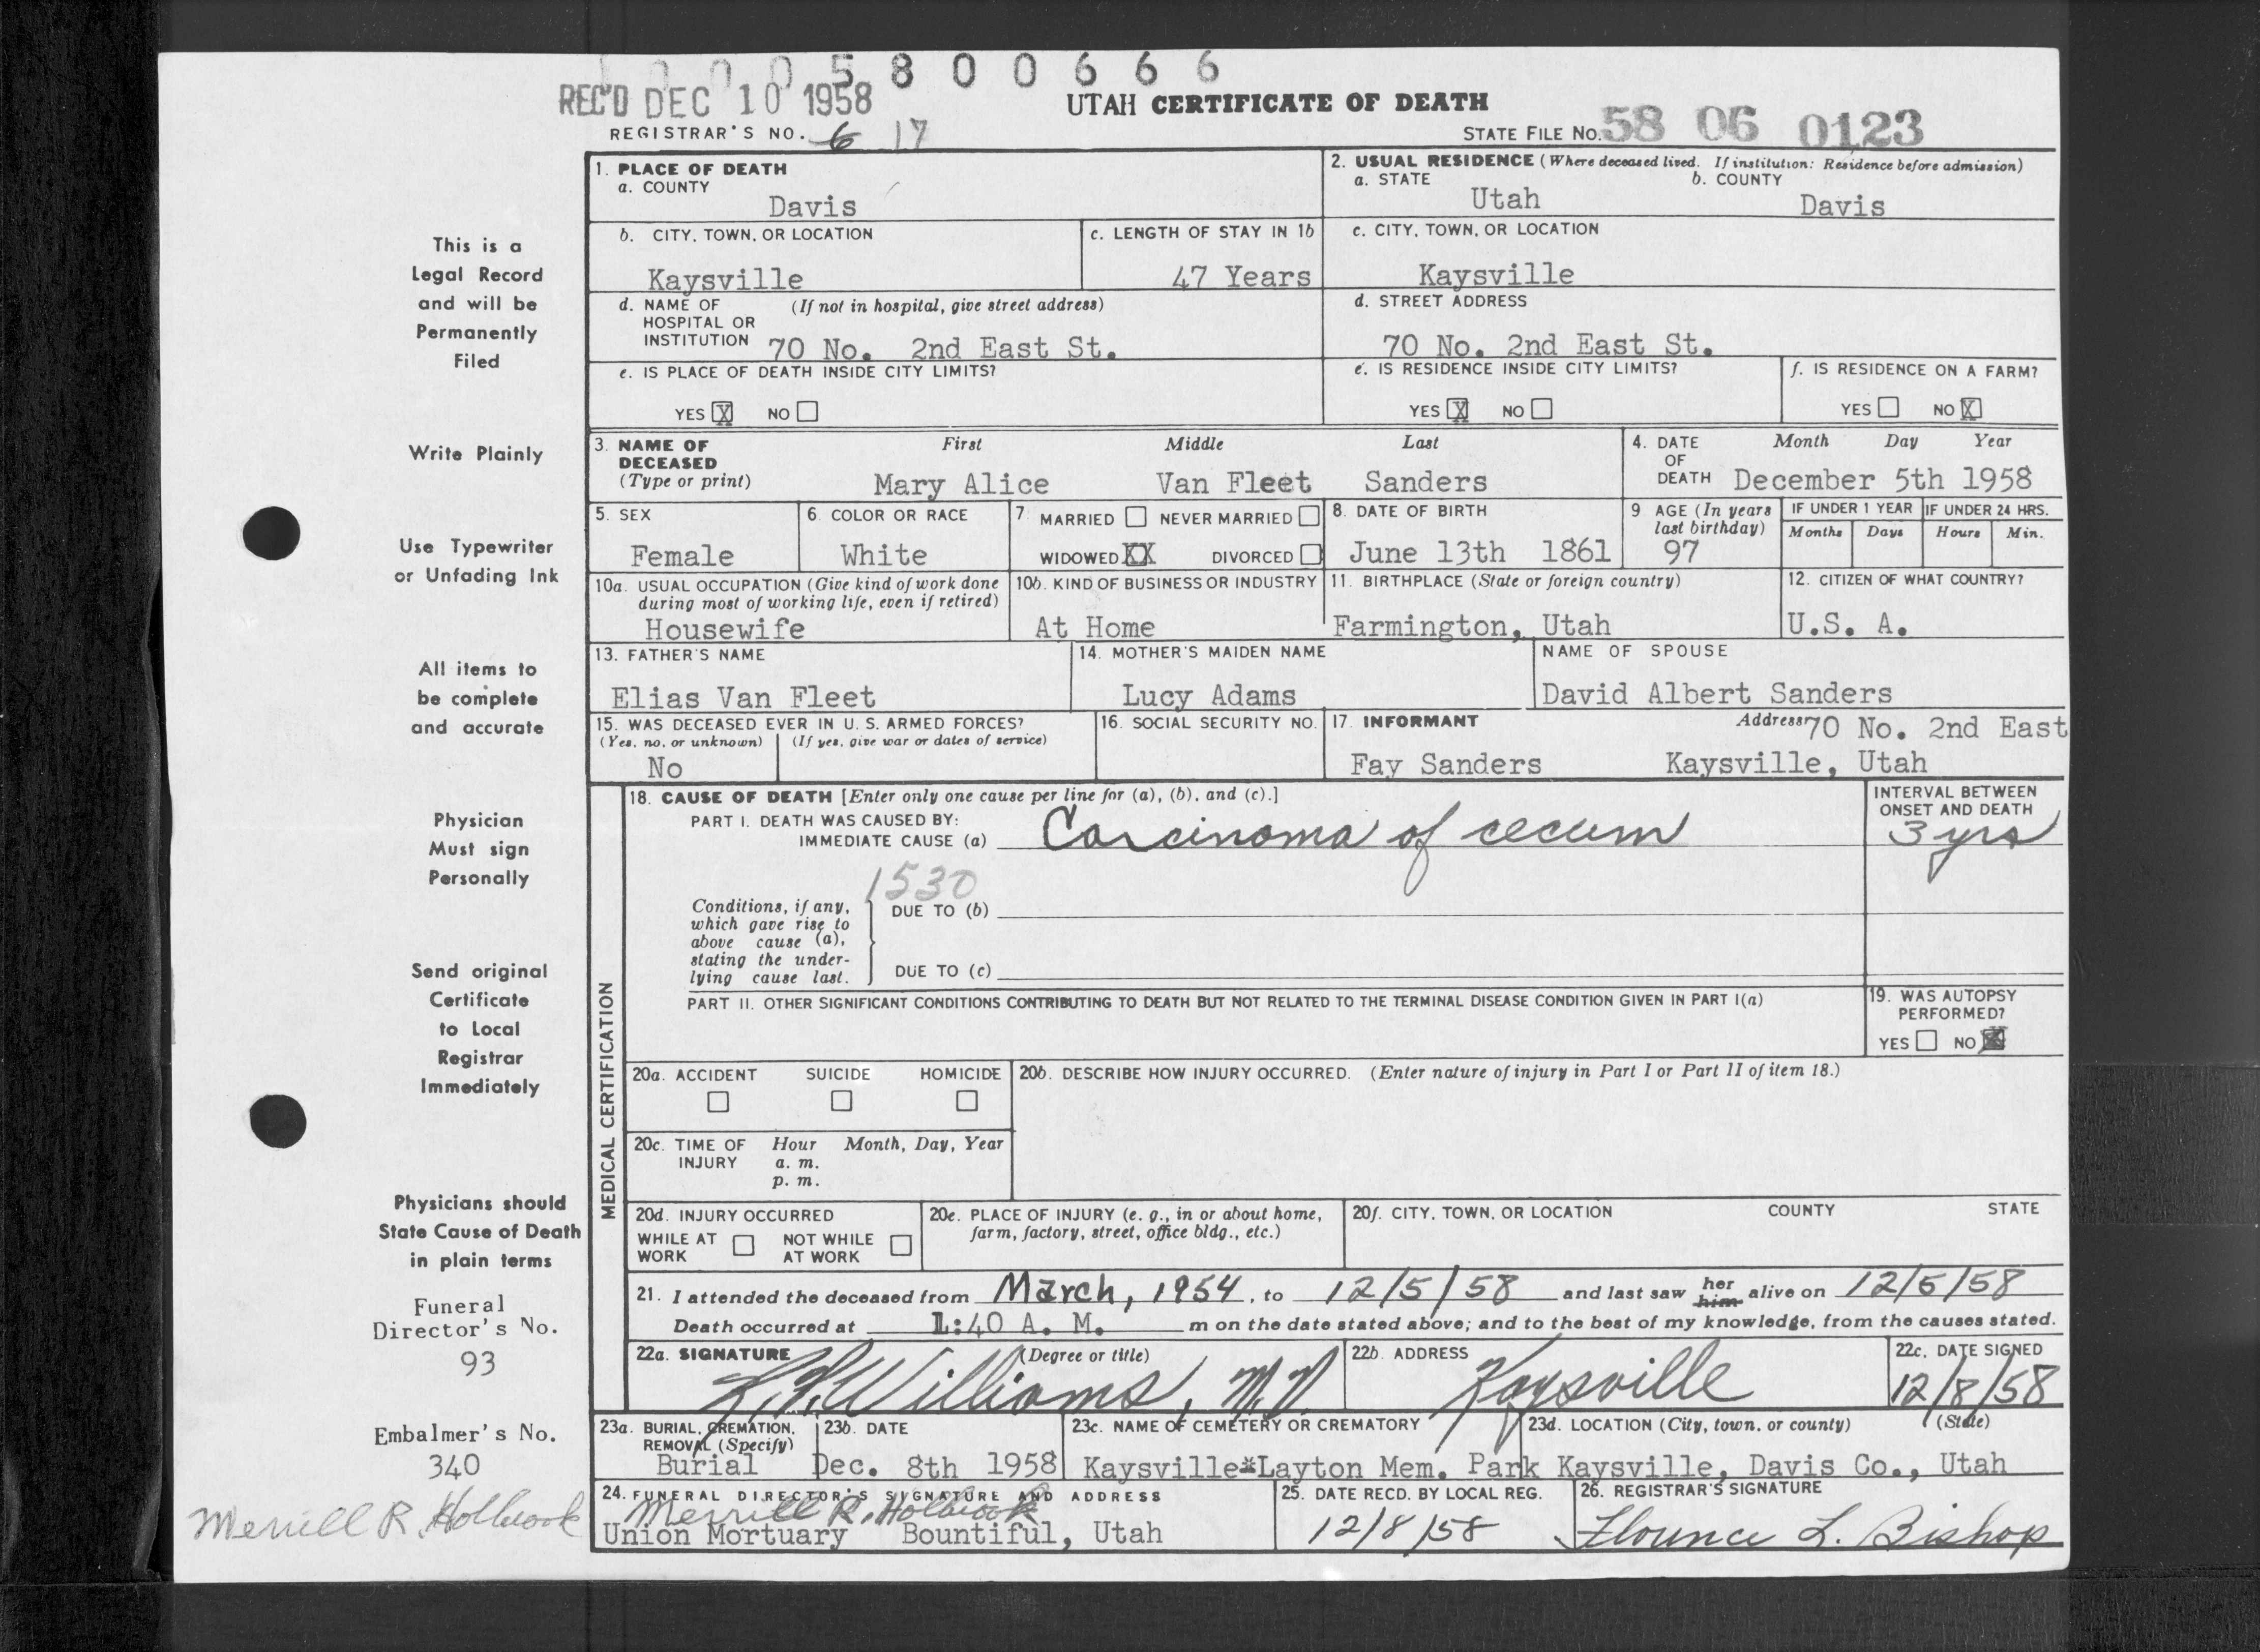 10005800666
REC'D DEC 10 1958
UTAH CERTIFICATE OF DEATH
REGISTRAR'S NO. 6 17
STATE FILE NO. 58 06 0123
This is a
Legal Record
and will be
Permanently
Filed
Write Plainly
Use Typewriter
or Unfading Ink
All items to
be complete
and accurate
Physician
Must sign
Personally
Send original
Certificate
to Local
Registrar
Immediately
Physicians should
State Cause of Death
in plain terms
Funeral
Director's No.
93
Embalmer's No.
340
Merrill R. Holbrook
1. PLACE OF DEATH
a. COUNTY
Davis
2. USUAL RESIDENCE (Where deceased lived. If institution: Residence before admission)
a. STATE Utah b. COUNTY Davis
b. CITY, TOWN, OR LOCATION
Kaysville
c. LENGTH OF STAY IN 1b
47 Years
c. CITY, TOWN, OR LOCATION
Kaysville
d. NAME OF (If not in hospital, give street address)
HOSPITAL OR
INSTITUTION 70 No. 2nd East St.
d. STREET ADDRESS
70 No. 2nd East St.
e. IS PLACE OF DEATH INSIDE CITY LIMITS?
YES X NO
e. IS RESIDENCE INSIDE CITY LIMITS?
YES X NO
f. IS RESIDENCE ON A FARM?
YES NO X
3. NAME OF First Middle Last
DECEASED
(Type or print) Mary Alice Van Fleet Sanders
4. DATE Month Day Year
OF
DEATH December 5th 1958
5. SEX
Female
6. COLOR OR RACE
White
7. MARRIED NEVER MARRIED
WIDOWED XX DIVORCED
8. DATE OF BIRTH
June 13th 1861
9 AGE (In years
last birthday)
97
IF UNDER 1 YEAR
Months Days
IF UNDER 24 HRS.
Hours Min.
10a. USUAL OCCUPATION (Give kind of work done
during most of working life, even if retired)
Housewife
10b. KIND OF BUSINESS OR INDUSTRY
At Home
11. BIRTHPLACE (State or foreign country)
Farmington, Utah
12. CITIZEN OF WHAT COUNTRY?
U.S. A.
13. FATHER'S NAME
Elias Van Fleet
14. MOTHER'S MAIDEN NAME
Lucy Adams
NAME OF SPOUSE
David Albert Sanders
15. WAS DECEASED EVER IN U. S. ARMED FORCES?
(Yes, no, or unknown) (If yes, give war or dates of service)
No
16. SOCIAL SECURITY NO.
17. INFORMANT Address 70 No. 2nd East
Fay Sanders Kaysville, Utah
MEDICAL CERTIFICATION
18. CAUSE OF DEATH [Enter only one cause per line for (a), (b), and (c).]
PART I. DEATH WAS CAUSED BY:
IMMEDIATE CAUSE (a) Carcinoma of cecum
INTERVAL BETWEEN
ONSET AND DEATH
3 yrs
1530
Conditions, if any,
which gave rise to
above cause (a),
stating the under-
lying cause last.
DUE TO (b)
DUE TO (c)
PART II. OTHER SIGNIFICANT CONDITIONS CONTRIBUTING TO DEATH BUT NOT RELATED TO THE TERMINAL DISEASE CONDITION GIVEN IN PART I(a)
19. WAS AUTOPSY
PERFORMED?
YES NO X
20a. ACCIDENT SUICIDE HOMICIDE
20b. DESCRIBE HOW INJURY OCCURRED. (Enter nature of injury in Part I or Part II of item 18.)
20c. TIME OF Hour Month, Day, Year
INJURY a. m.
p. m.
20d. INJURY OCCURRED
WHILE AT WORK NOT WHILE AT WORK
20e. PLACE OF INJURY (e. g., in or about home,
farm, factory, street, office bldg., etc.)
20f. CITY, TOWN, OR LOCATION COUNTY STATE
21. I attended the deceased from March, 1954, to 12/5/58 and last saw her him alive on 12/5/58
Death occurred at 1:40 A. M. m on the date stated above; and to the best of my knowledge, from the causes stated.
22a. SIGNATURE (Degree or title)
R. P. Williams, M.D
22b. ADDRESS
Kaysville
22c. DATE SIGNED
12/8/58
23a. BURIAL, CREMATION,
REMOVAL (Specify)
Burial
23b. DATE
Dec. 8th 1958
23c. NAME OF CEMETERY OR CREMATORY
Kaysville*Layton Mem. Park
23d. LOCATION (City, town, or county) (State)
Kaysville, Davis Co., Utah
24. FUNERAL DIRECTOR'S SIGNATURE AND ADDRESS
Merrill R. Holbrook
Union Mortuary Bountiful, Utah
25. DATE RECD. BY LOCAL REG.
12/8/58
26. REGISTRAR'S SIGNATURE
Florence L. Bishop